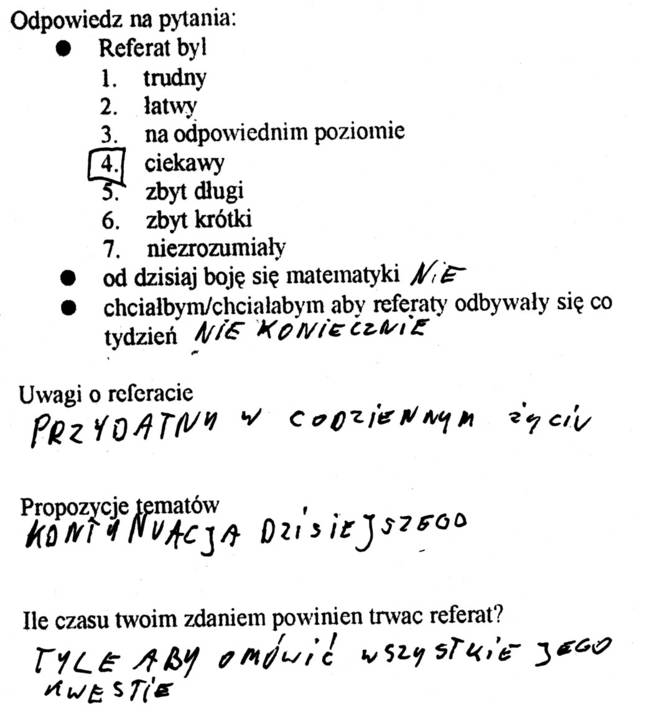 Odpowiedz na pytania:
● Referat był
1. trudny
2. łatwy
3. na odpowiednim poziomie
4. ciekawy
5. zbyt długi
6. zbyt krótki
7. niezrozumiały
● od dzisiaj boję się matematyki NIE
● chciałbym/chciałabym aby referaty odbywały się co
tydzień NIE KONIECZNIE
Uwagi o referacie
PRZYDATNY W CODZIENNYM życiu
Propozycje tematów
KONTYNUACJA DZISIEJSZEGO
Ile czasu twoim zdaniem powinien trwac referat?
TYLE ABY OMÓWIĆ WSZYSTKIE JEGO
KWESTIE